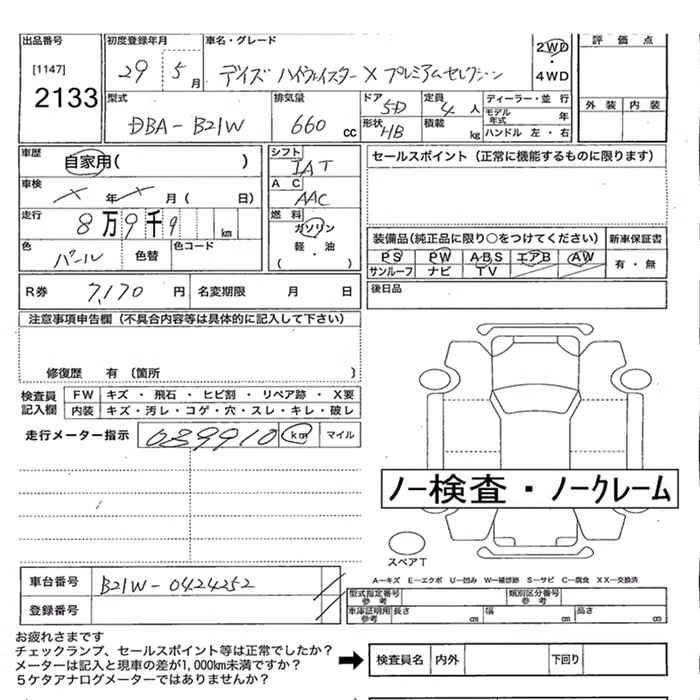 出品番号 初度登録年月 車名・グレード 評価点
[1147] 2133 29 5月 デイズ ハイウェイスター X プレミアムセレクション 2WD・4WD
外装 内装
型式 排気量 ドア 5D 定員 4人 ディーラー・並行
DBA-B21W 660cc 形状 HB 積載 kg モデル年式 年
ハンドル 左・右
車歴 自家用( ) シフト IAT セールスポイント(正常に機能するものに限ります)
車検 X年X月( 日) AC AAC
走行 8万9千9 km 燃料 ガソリン
軽・油
( )
色 パール 色替 色コード
装備品(純正品に限り○をつけてください) 新車保証書
PS PW ABS エアB AW 有・無
サンルーフ ナビ TV
R券 7,170円 名変期限 月 日 後日品
注意事項申告欄(不具合内容等は具体的に記入して下さい)
修復歴 有(箇所 )
検査員記入欄 FW キズ・飛石・ヒビ割・リペア跡・X要
内装 キズ・汚レ・コゲ・穴・スレ・キレ・破レ
走行メーター指示 089910 km マイル
ノー検査・ノークレーム
スペアT
A-キズ E-エクボ U-凹み W-補修跡 S-サビ C-腐食 XX-交換済
車台番号 B21W-0424252
登録番号
型式指定番号参考 類別区分番号参考
車庫証明用参考 長さ cm 幅 cm 高さ cm
お疲れさまです
チェックランプ、セールスポイント等は正常でしたか?
メーターは記入と現車の差が1,000km未満ですか?
5ケタアナログメーターではありませんか?
検査員名 内外 下回り